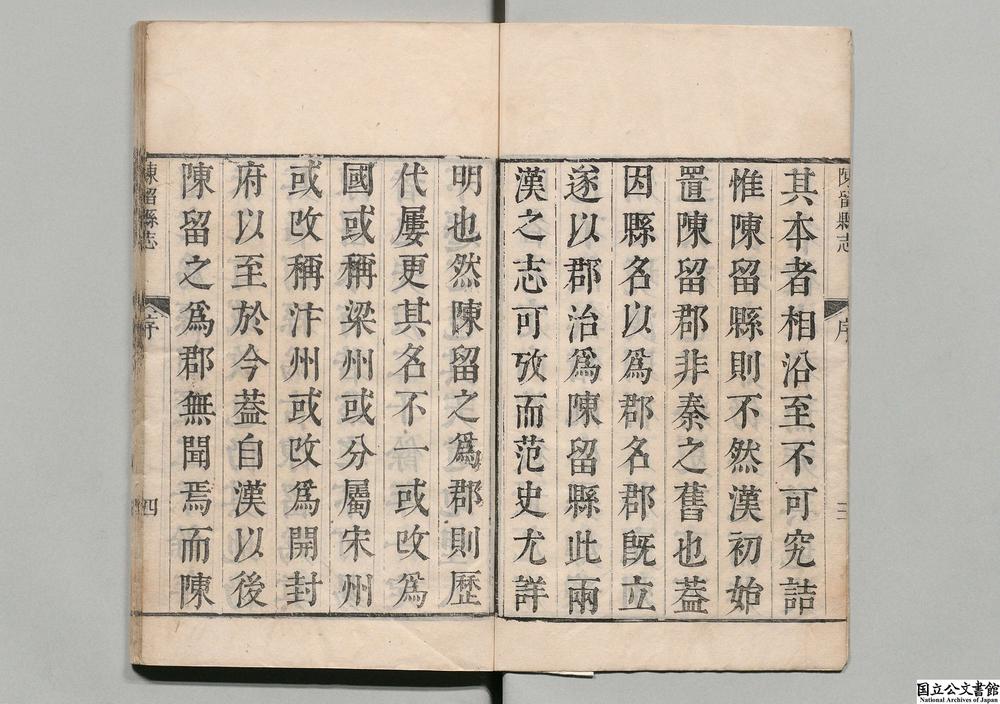 陳留縣志
序
三
其本者相沿至不可究詰
惟陳留縣則不然漢初始
置陳留郡非秦之舊也蓋
因縣名以爲郡名郡旣立
遂以郡治爲陳留縣此兩
漢之志可攷而范史尤詳
明也然陳留之爲郡則歷
代屢更其名不一或攺爲
國或稱梁州或分屬宋州
或攺稱汴州或攺爲開封
府以至於今蓋自漢以後
陳留之爲郡無聞焉而陳
陳留縣志
序
四
国立公文書館
National Archives of Japan